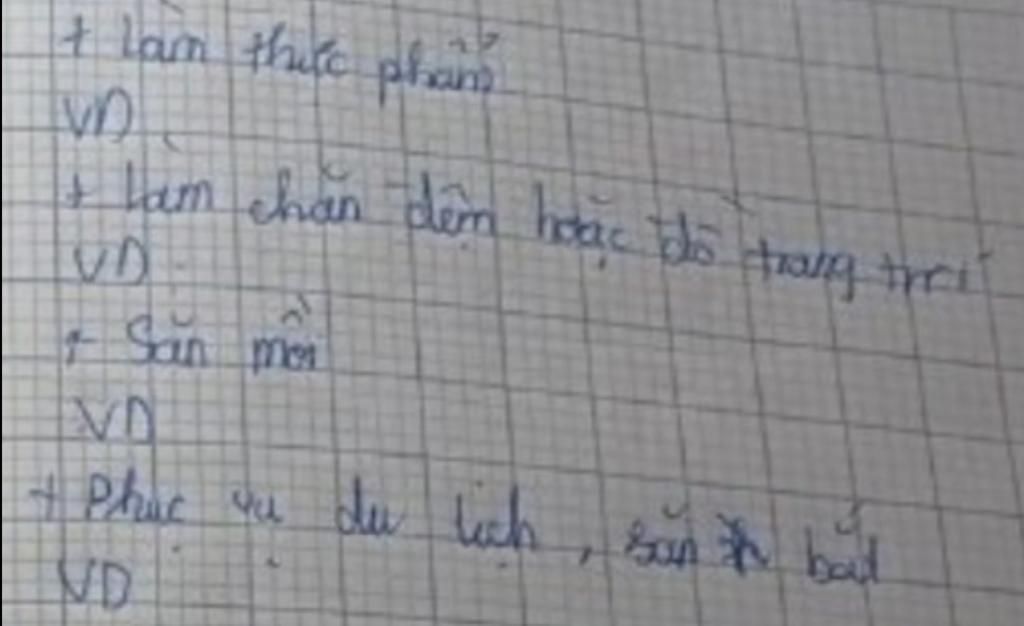 + Làm thực phẩm
VD
+ Làm chăn đệm hoặc đồ trang trí
VD
+ Săn mồi
VD
+ Phục vụ du lịch, săn bắt
VD